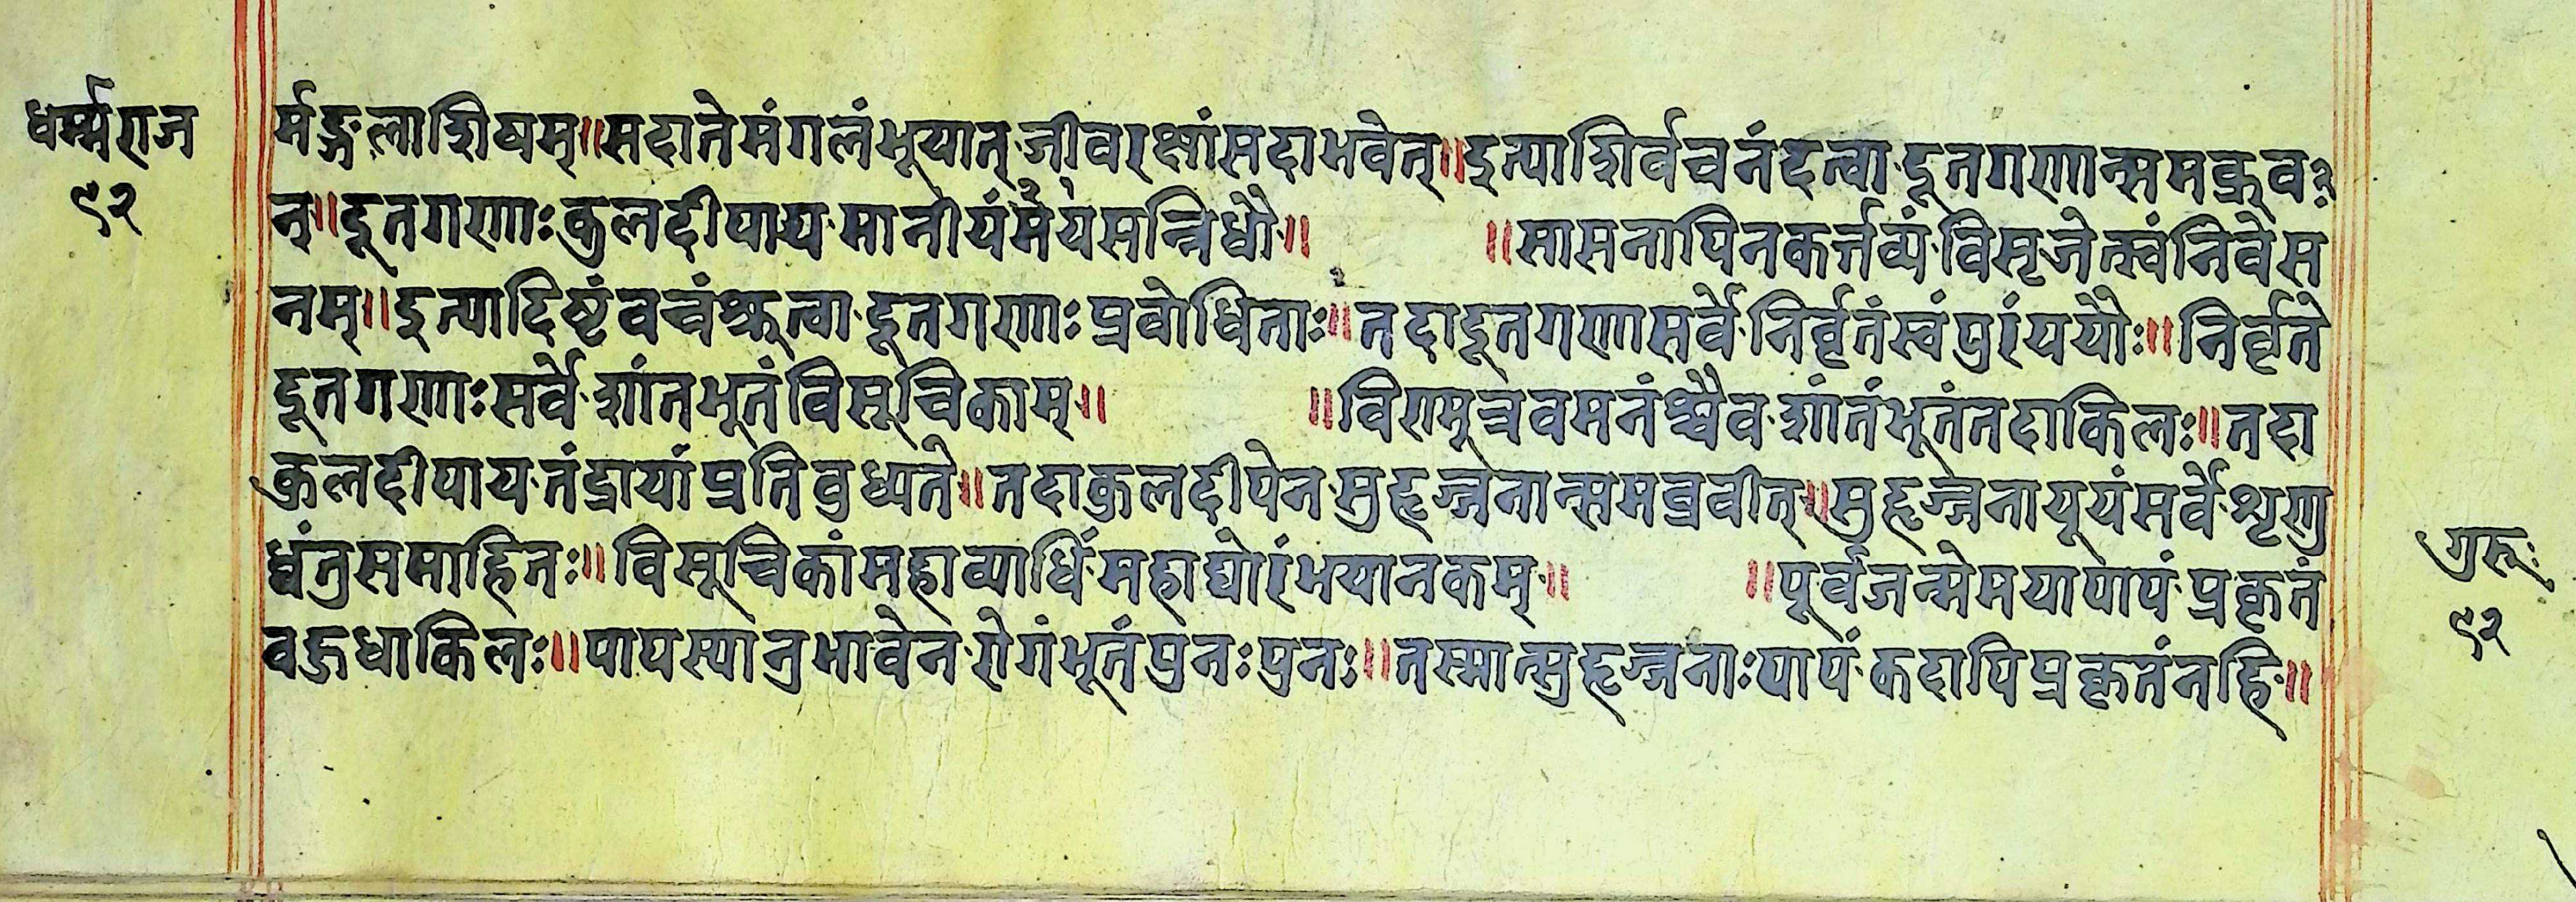 धर्म्मराज
१२
र्मङ्गलाशिषम्॥सदातेमंगलंभूयात्·जीवरक्षांसदाभवेत्॥इत्याशिर्वचनंदत्वा·दूतगणान्समब्रुव
न्॥दूतगणाःकुलदीपाय·मानीयंममयसन्निधौ॥ ॥सासनापिनकर्त्तव्यं·विसृजेत्स्वंनिवेस
नम्॥इत्यादिष्टंवचंश्रुत्वा·दूतगणाःप्रवोधिताः॥तदादूतगणासर्वे·निर्वृतंस्वंपुरंययौः॥निर्वृते
दूतगणाःसर्वे·शांतभूतंविसूचिकाम्॥ ॥विरामूत्रवमनंश्चैव·शांतंभूतंतदाकिलः॥तदा
कुलदीपाय·तंद्रायांप्रतिवुध्यते॥तदाकुलदीपेन·सुहृज्जनान्समब्रवीत्॥सुहृज्जनायूयंसर्वे·शृणु
ध्वंतुसमाहितः॥विसूचिकांमहाव्याधिं·महाघोरंभयानकम्॥ ॥पूर्वजन्मेमयापापं·प्रकृतं
वहुधाकिलः॥पापस्यानुभावेन·रोगंभूतंपुनःपुनः॥तस्मात्सुहृज्जनाःपापं·कदापिप्रकृतंनहि॥
गुरूः
१२